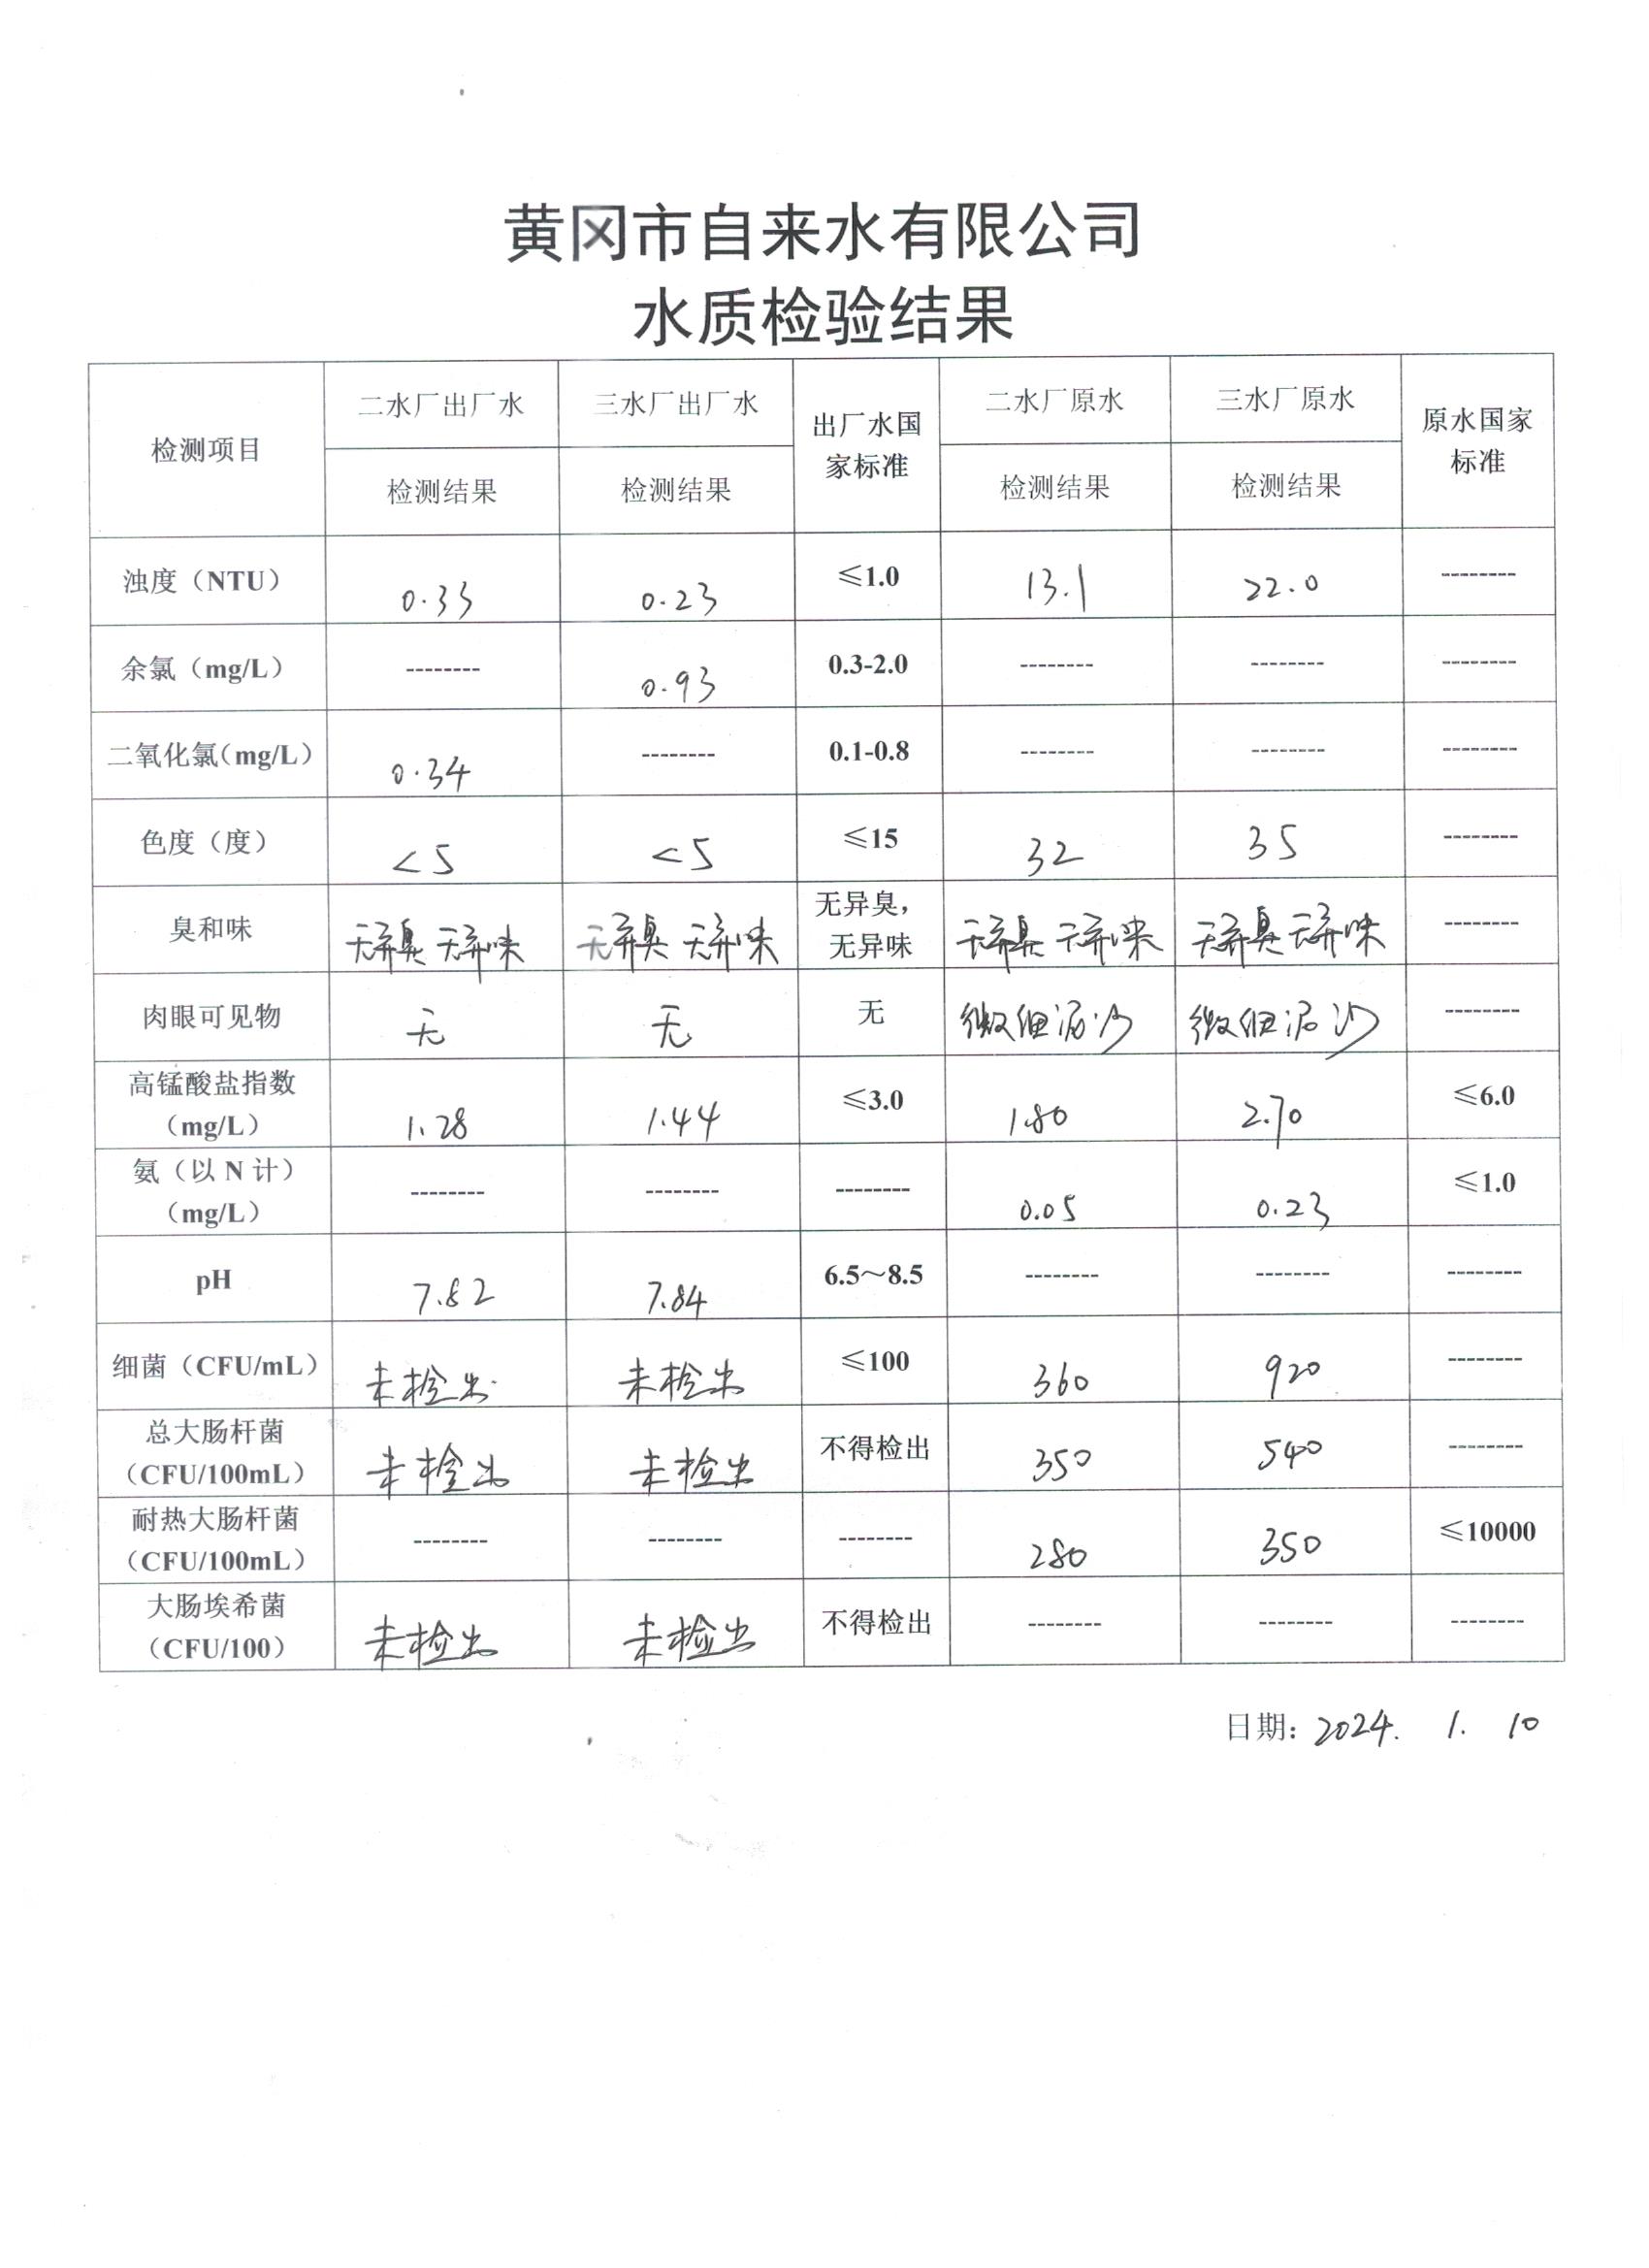 黄冈市自来水有限公司
水质检验结果
检测项目 二水厂出厂水 三水厂出厂水 出厂水国家标准 二水厂原水 三水厂原水 原水国家标准
检测结果 检测结果 检测结果 检测结果
浊度（NTU） 0.33 0.23 ≤1.0 13.1 22.0 --------
余氯（mg/L） -------- 0.93 0.3-2.0 -------- -------- --------
二氧化氯（mg/L） 0.34 -------- 0.1-0.8 -------- -------- --------
色度（度） <5 <5 ≤15 32 35 --------
臭和味 无异臭 无异味 无异臭 无异味 无异臭，无异味 无异臭 无异味 无异臭 无异味 --------
肉眼可见物 无 无 无 微细泥沙 微细泥沙 --------
高锰酸盐指数（mg/L） 1.28 1.44 ≤3.0 1.80 2.70 ≤6.0
氨（以 N 计）（mg/L） -------- -------- -------- 0.05 0.23 ≤1.0
pH 7.82 7.84 6.5～8.5 -------- -------- --------
细菌（CFU/mL） 未检出 未检出 ≤100 360 920 --------
总大肠杆菌（CFU/100mL） 未检出 未检出 不得检出 350 540 --------
耐热大肠杆菌（CFU/100mL） -------- -------- -------- 280 350 ≤10000
大肠埃希菌（CFU/100） 未检出 未检出 不得检出 -------- -------- --------
日期: 2024. 1. 10